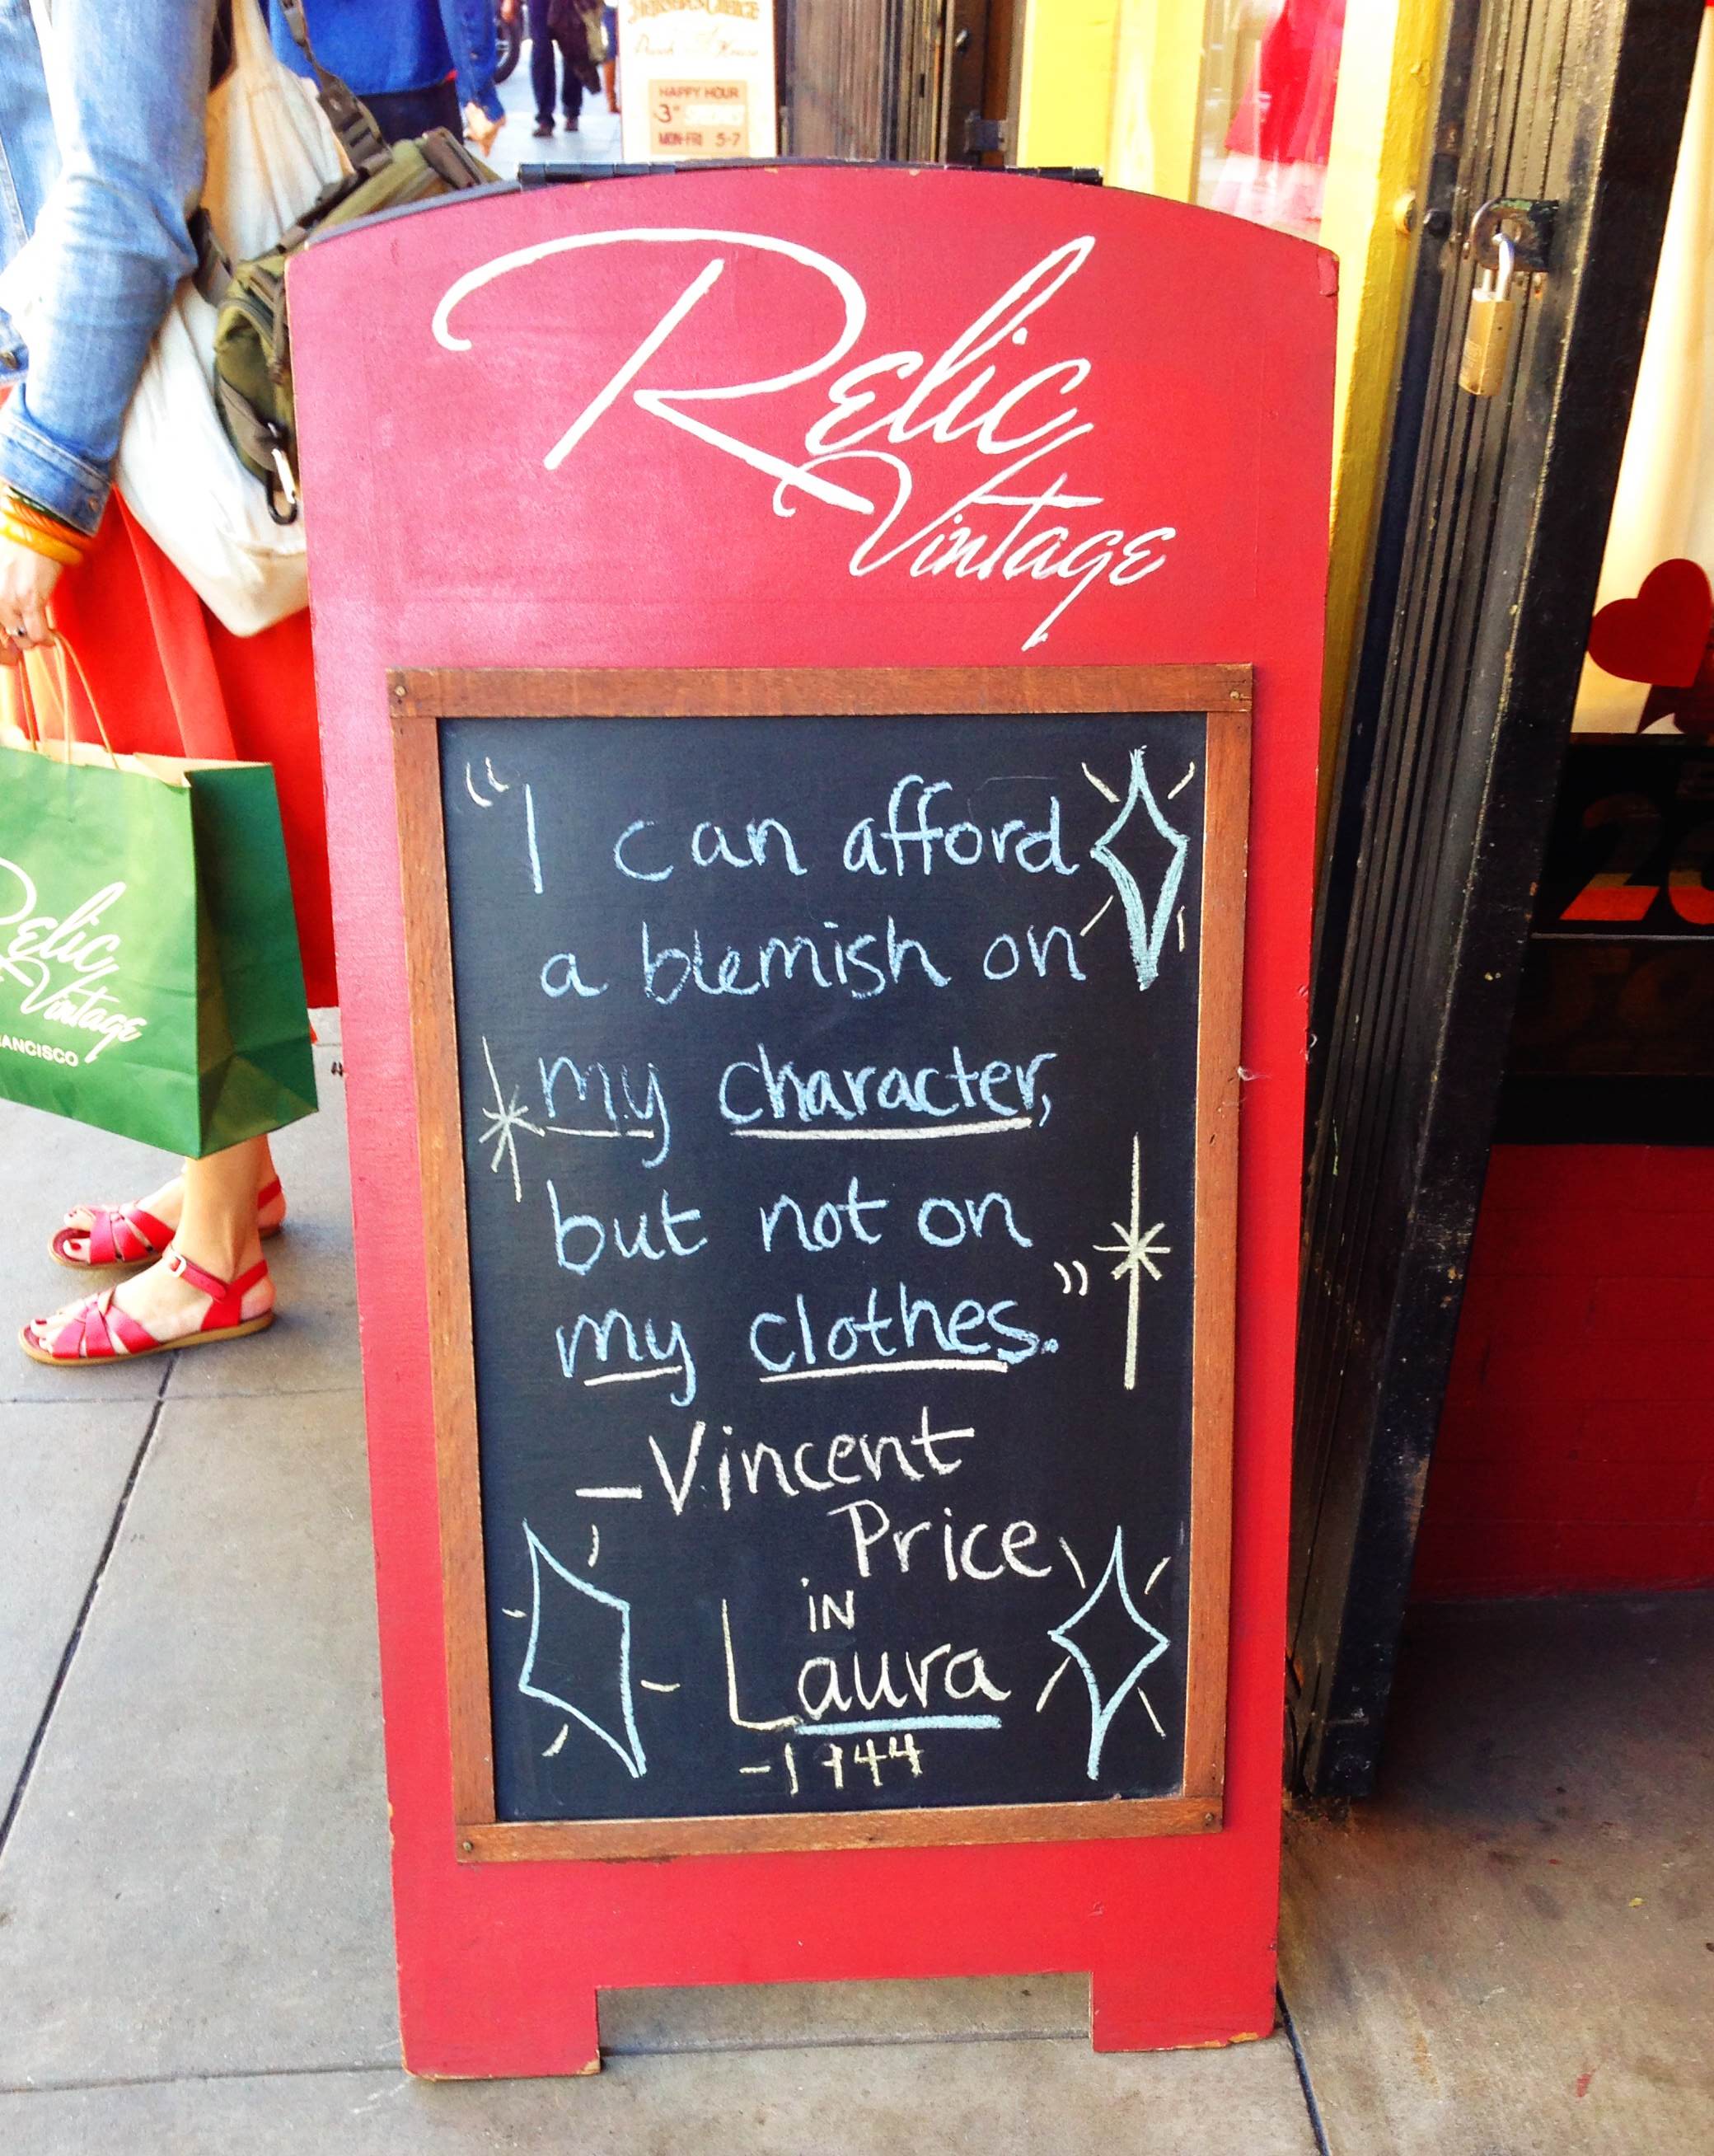 HAPPY HOUR
MON-FRI 5-7
Relic
Vintage
"I can afford
a blemish on
my character,
but not on
my clothes."
—Vincent
Price
IN
Laura
-1944
Relic
Vintage
ANCISCO